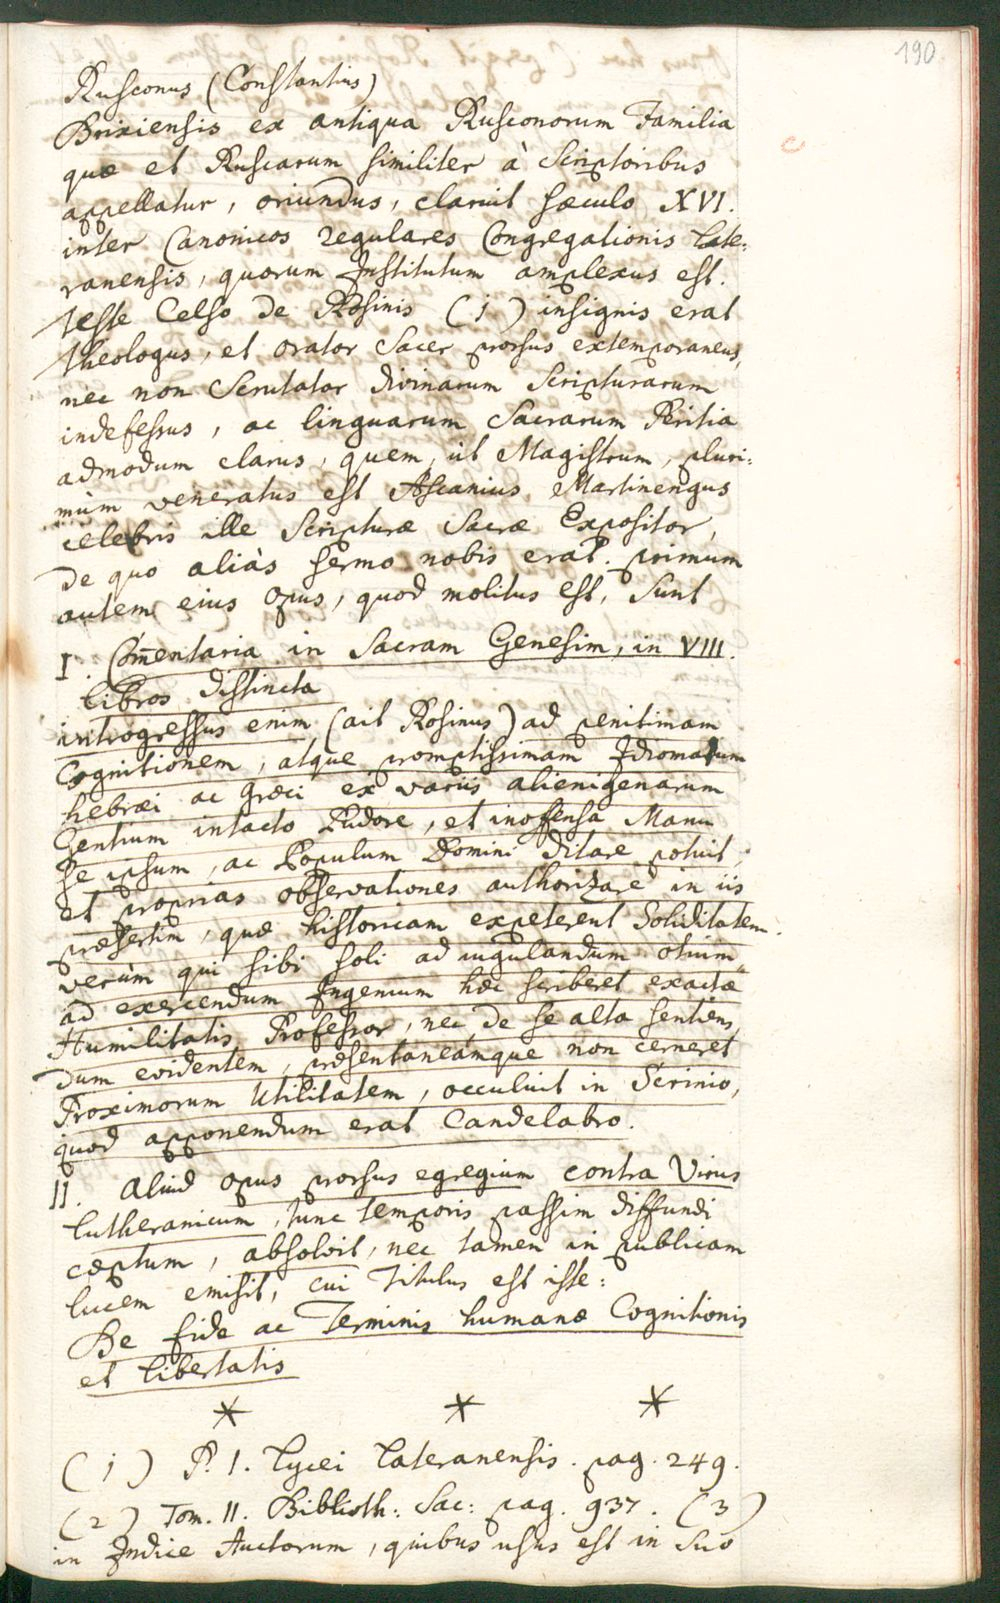 190
Rusconus (Constantius)
Brixiensis ex antiqua Rusconorum Familia
quæ et Ruscarum similiter à Scriptoribus
appellatur, oriundus, claruit sæculo XVI.
inter Canonicos regulares Congregationis Late:
ranensis, quorum Institutum amplexus est.
teste Celso de Rosinis (1) insignis erat
theologus, et orator sacer prorsus extemporaneus,
nec non Scrutator divinarum Scripturarum
indefessus, ac linguarum Sacrarum Peritia
admodum clarus, quem, ut Magistrum, pluri:
mùm veneratus est Ascanius Martinengus
celebris ille Scripturæ Sacræ Expositor,
de quo aliàs sermo nobis erat. primum
autem eius opus, quod molitus est, sunt
I. Com̄entaria in Sacram Genesim, in VIII.
libros distincta
introgressus enim (ait Rosinus) ad penitimam
Cognitionem, atque promptissimam Idiomatum
hebræi ac Græci ex variis alienigenarum
Gentium intacto Pudore, et inoffensa Manu
se ipsum, ac Populum Domini ditare potuit;
et proprias observationes authorizare in iis
præsertim, quæ historicam expeterent Soliditatem.
verùm qui sibi soli ad iugulandum otium
ad exercendum Ingenium hæc scriberet exactæ
Humilitatis Professor, nec de se alta sentiens,
dum evidentem, præsentaneámque non cerneret
Proximorum Utilitatem, occuluit in Scrinio,
quod apponendum erat Candelabro.
II. Aliud opus prorsus egregium contra Virus
Lutheranicum, tunc temporis passim diffundi
cæptum, absolvit, nec tamen in publicam
lucem emisit, cui Titulus est iste:
De fide ac Terminis humanæ Cognitionis
et libertatis
* * *
(1) P. I. Lycei Lateranensis. pag. 249.
(2) Tom. II. Biblioth: Sac: pag. 937. (3)
in Indice Auctorum, quibus usus est in suo